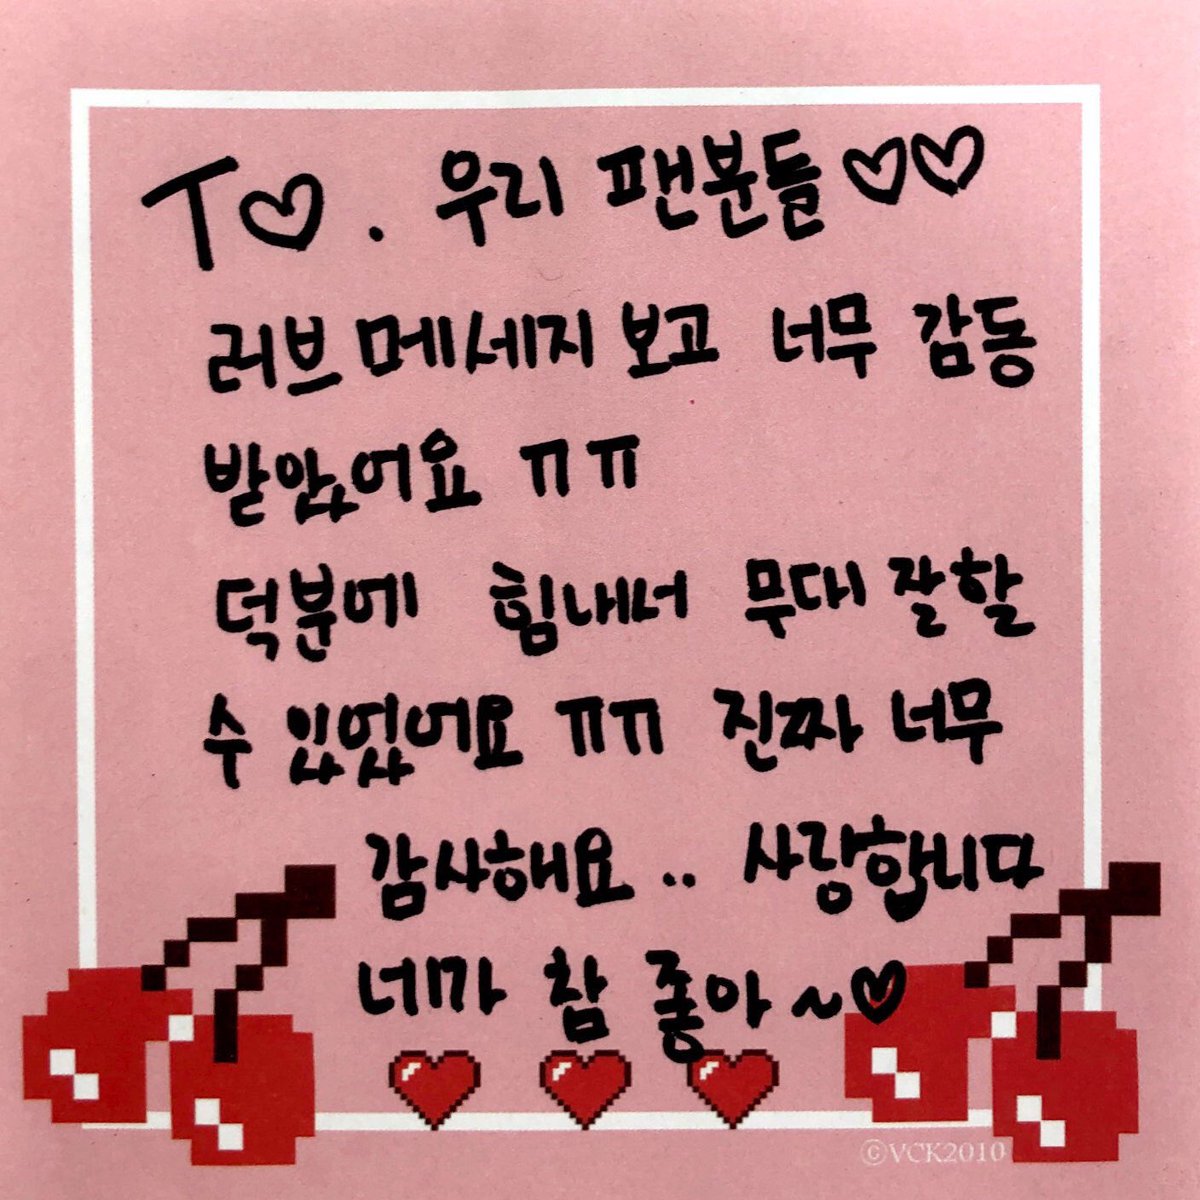 T♡. 우리 팬분들♡♡
러브메세지 보고 너무 감동
받았어요 ㅠㅠ
덕분에 힘내서 무대 잘할
수 있었어요 ㅠㅠ 진짜 너무
감사해요.. 사랑합니다
네가 참 좋아~♡
©VCK2010